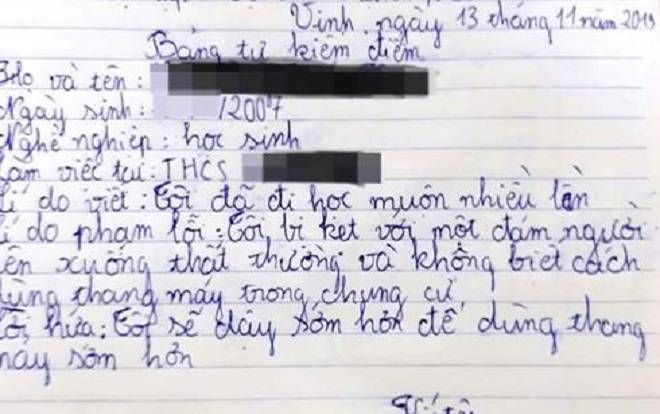 Vinh, ngày 13 tháng 11 năm 2019
Bảng tự kiểm điểm
Họ và tên :
Ngày sinh : /2007
Nghề nghiệp : học sinh
Làm việc tại : THCS
Lí do viết : Tôi đã đi học muộn nhiều lần
Lí do phạm lỗi : Tôi bị kẹt với một đám người
lên xuống thất thường và không biết cách
dùng thang máy trong chung cư,
Lời hứa : Tôi sẽ dậy sớm hơn để dùng thang
máy sớm hơn